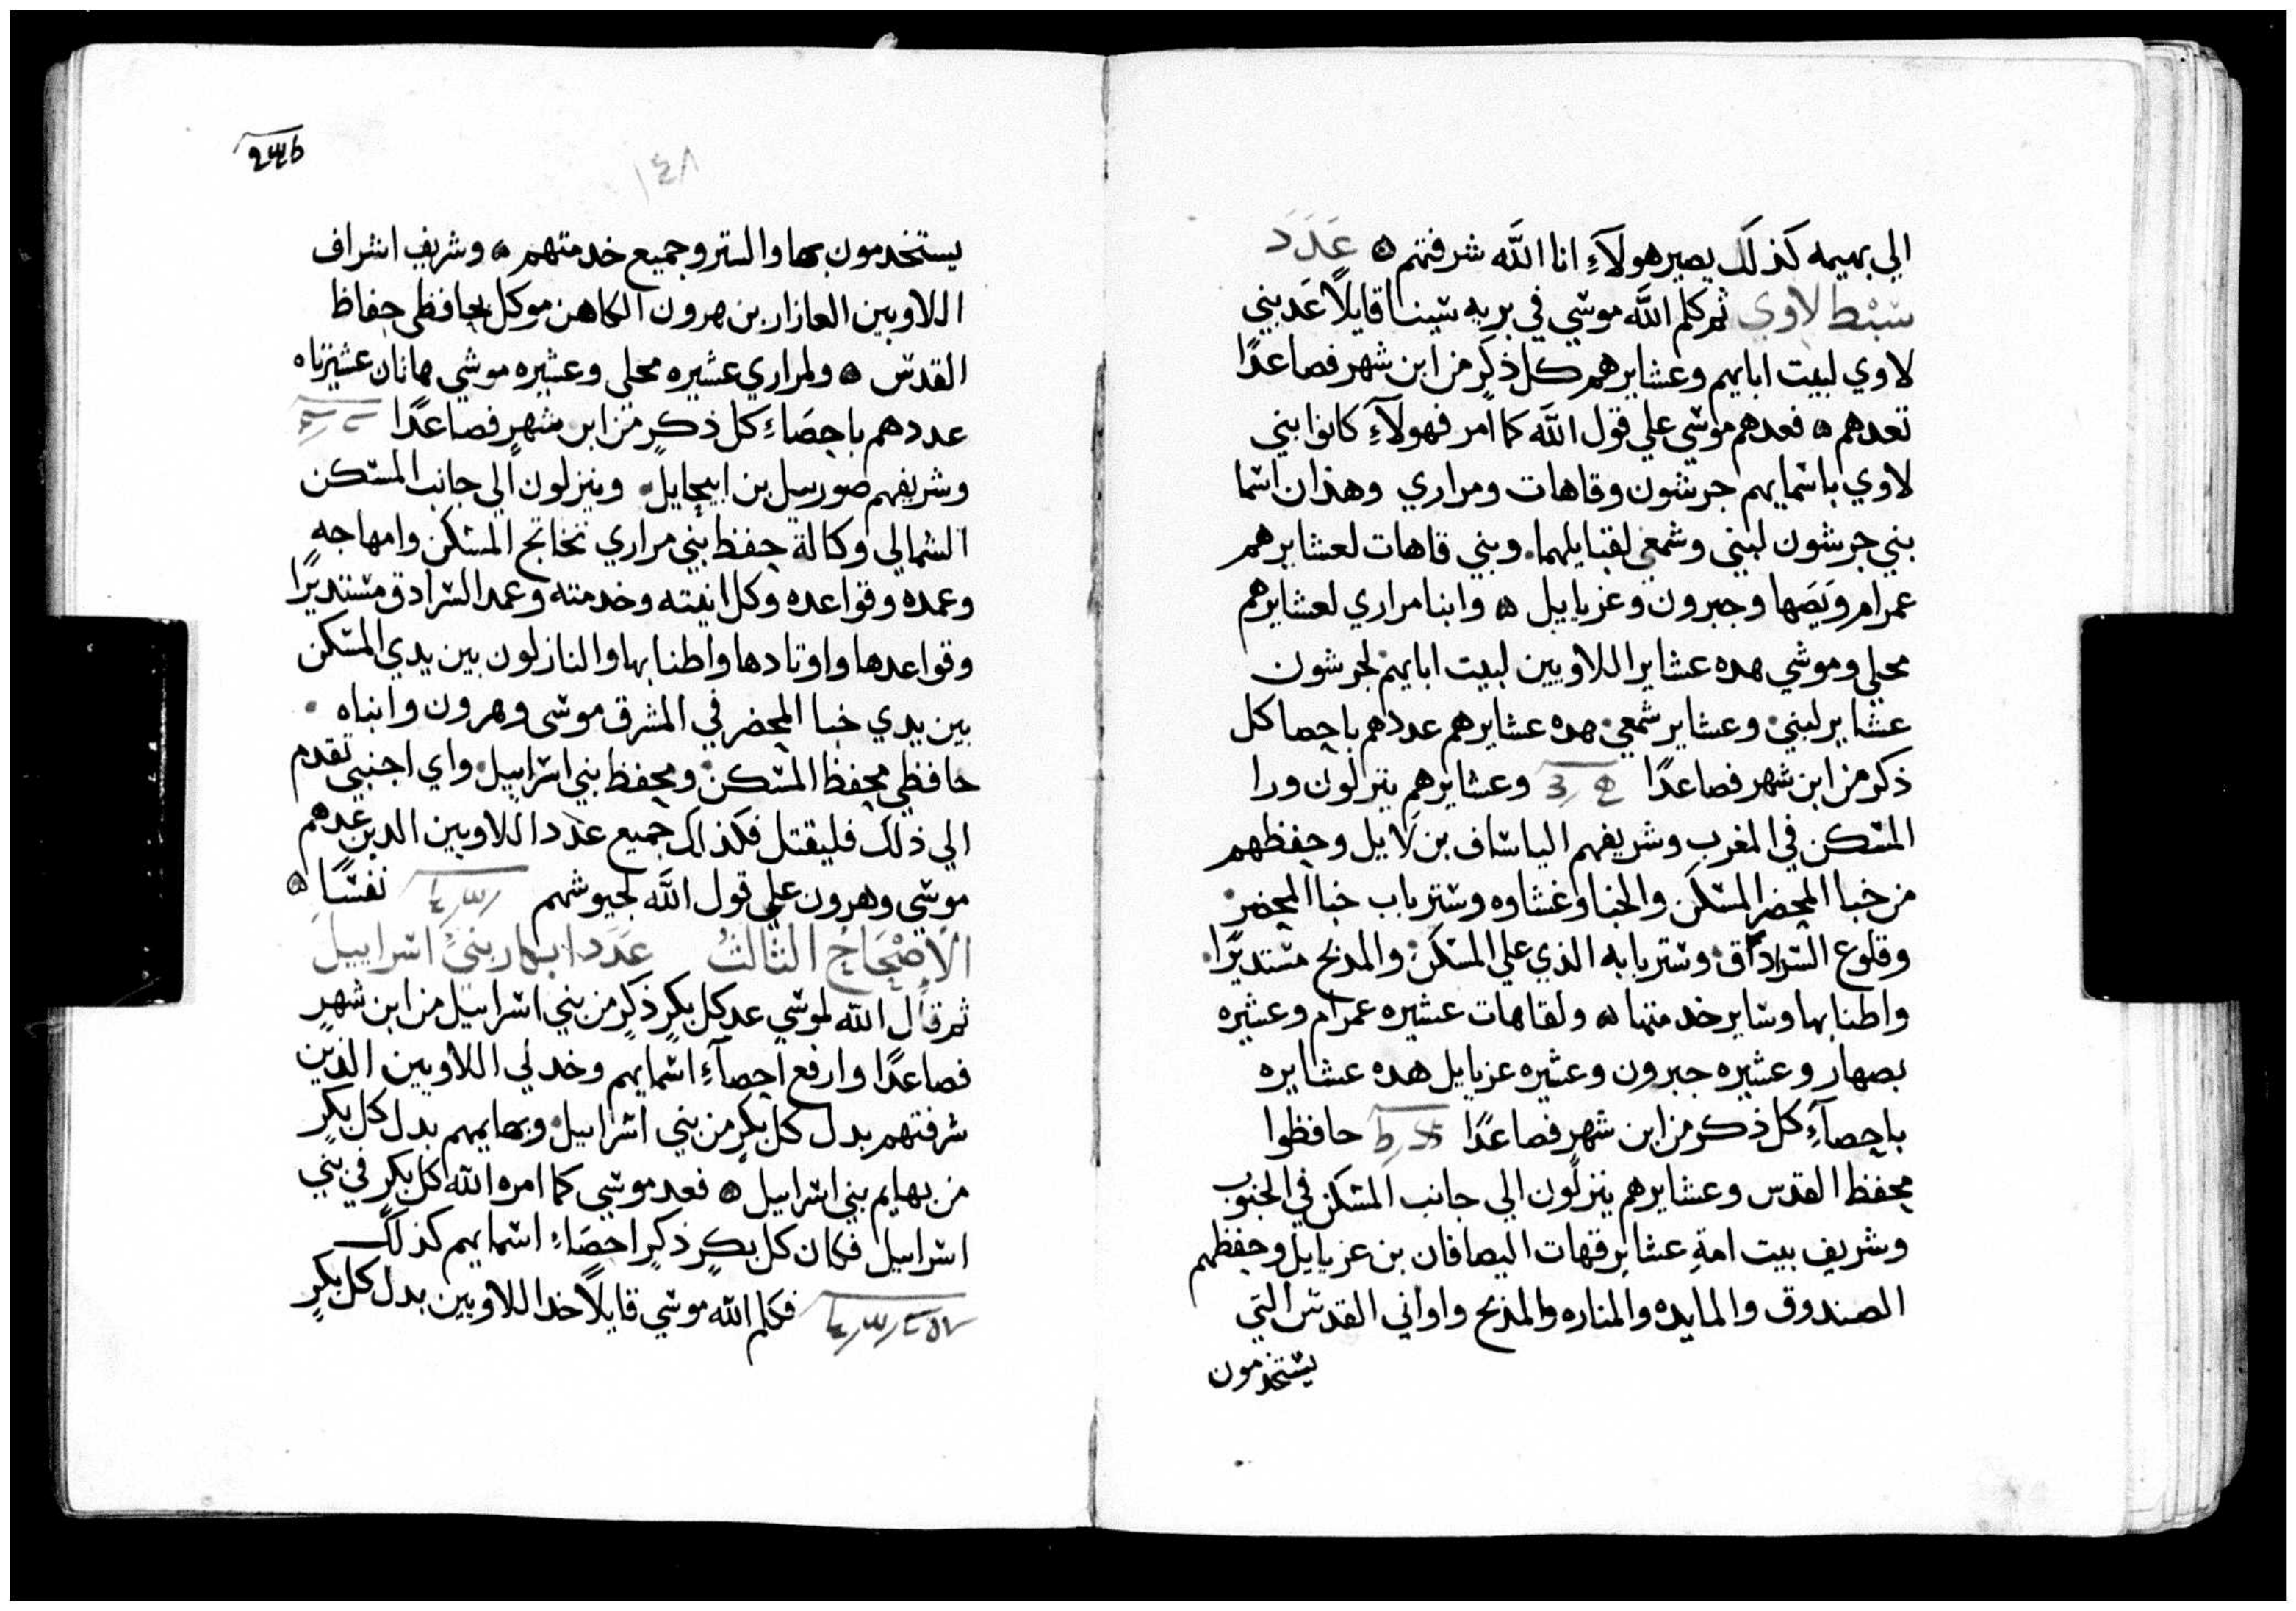 الي بهيمه كذلك يصير هولآءِ انا اللَّه شرفتهم ۞ عَدَدَ
سَبْط لاوي ثم كلم اللَّه موسي في بريه سينا قايلًا عَد بني
لاوي لبيت ابايهم وعشايرهم كل ذكرٍ من ابن شهر فصاعدًا
تعدهم ۞ فعدهم موسي علي قول اللَّه كما امر فهولآءِ كانوا بني
لاوي باسمايهم جرشون وقاهات ومراري وهذان اسما
بني جرشون لبني وشمعي لقبايلهما. وبني قاهات لعشايرهم
عمرام ويَصَها وحبرون وعزياييل ۞ وابنا مراري لعشايرهم
محلي وموشي هده عشاير اللاويين لبيت ابايهم لجرشون
عشاير لبني وعشاير شمعي هده عشايرهم عددهم باحصا كل
ذكر من ابن شهر فصاعدًا وعشايرهم ينزلون ورا
المسكن في المغرب وشريفهم الياساف بن لاييل وحفظهم
من خبا المحضر المسكن والخبا وغشاوه وستر باب خبا المحضر
وقلوع السرادق وستر بابه الذي علي المسكن والمدبح مستديرًا.
واطنابها وساير خدمتها ۞ ولقاهات عشيره عمرام وعشيره
بصهار وعشيره حبرون وعشيره عزيايل هده عشايره
باحصآءِ كل ذكر من ابن شهر فصاعدًا حافظوا
محفظ القدس وعشايرهم ينزلون الي جانب المسكن في الجنوب
وشريف بيت امة عشاير قهات اليصافان بن عزيايل وحفظهم
الصندوق والمايده والمناره والمذبح واواني القدس التي
يستخدمون
١٤٨
يستخدمون بها والستر وجميع خدمتهم ۞ وشريف اشراف
اللاويين العازار بن هرون الكاهن موكل بحافظي حفاظ
القدس ۞ ولمراري عشيره محلي وعشيره موشي هاتان عشيرتاه
عددهم باحصَاءِ كل ذكرٍ من ابن شهرٍ فصاعدًا
وشريفهم صورييل بن ابيحايل. وينزلون الي جانب المسكن
الشمالي وكالة حفظ بني مراري تخاتج المسكن وامهاجه
وعمده وقواعده وكل انيته وخدمته وعمد السرادق مستديرًا
وقواعدها واوتادها واطنابها والنازلون بين يدي المسكن
بين يدي خبا المحضر في المشرق موسي وهرون وابناه .
حافظي محفظ المسكن ومحفظ بني اسراييل. واي اجنبي تقدم
الي ذلك فليقتل فكذلك جميع عدد اللاويين الدين عدهم
موسي وهرون علي قول اللَّه لجيوشهم نفسًا ۞
الإصْحَاحُ الثالثُ عَدَد ابهار بني اسراييل
ثم قال اللَّه لموسي عد كل بكرٍ ذكرٍ من بني اسراييل من ابن شهرٍ
فصاعدًا وارفع احصآءِ اسمايهم وخد لي اللاويين الذين
شرفتهم بدل كل بكرٍ من بني اسراييل. وبهايمهم بدل كل بكرٍ
من بهايم بني اسراييل ۞ فعد موسي كما امره اللَّه كل بكرٍ في بني
اسراييل فكان كل بكرٍ ذكرٍ احصَاءِ اسمايهم كذلك
فكلم اللَّه موسي قايلًا خد اللاويين بدل كل بكرٍ